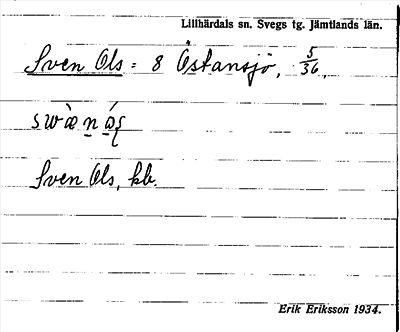 Lillhärdals sn. Svegs tg. Jämtlands län.
Sven Ols = 8 Östansjö, 5/36,
Sven Ols, kb.
Erik Eriksson 1934.